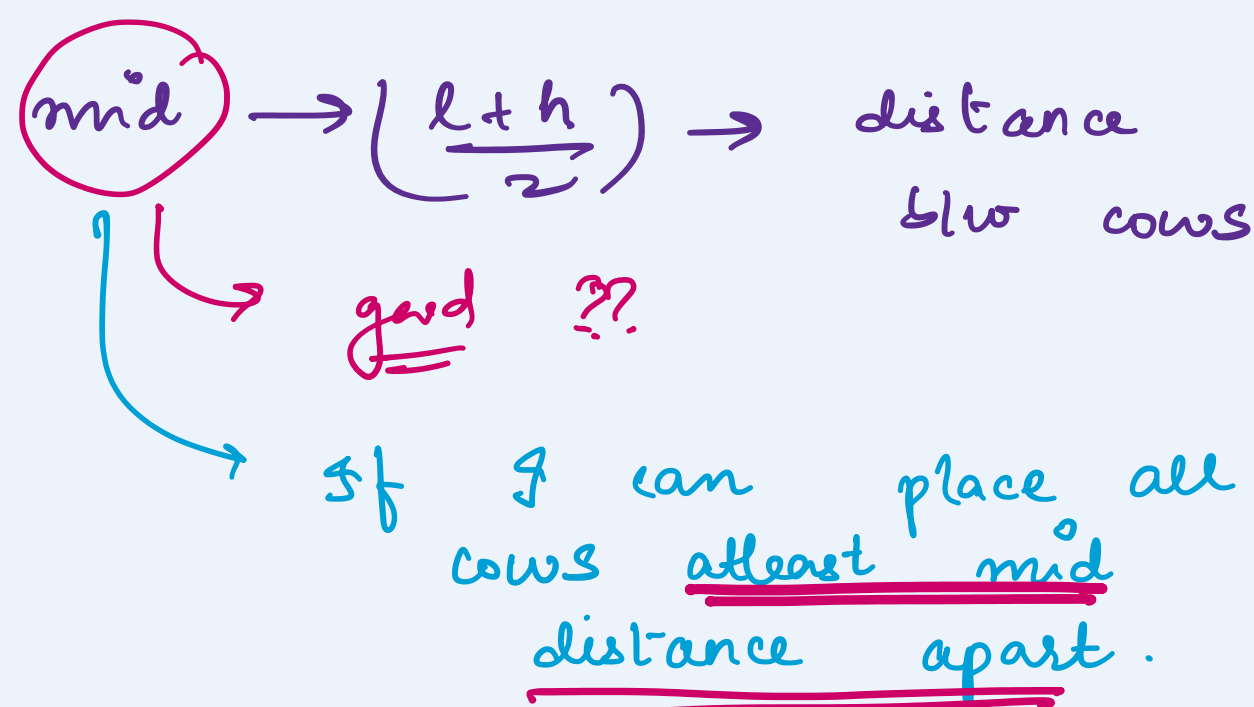 mid → (l + h / 2) → distance
b/w cows
good ??
If I can place all
cows atleast mid
distance apart.